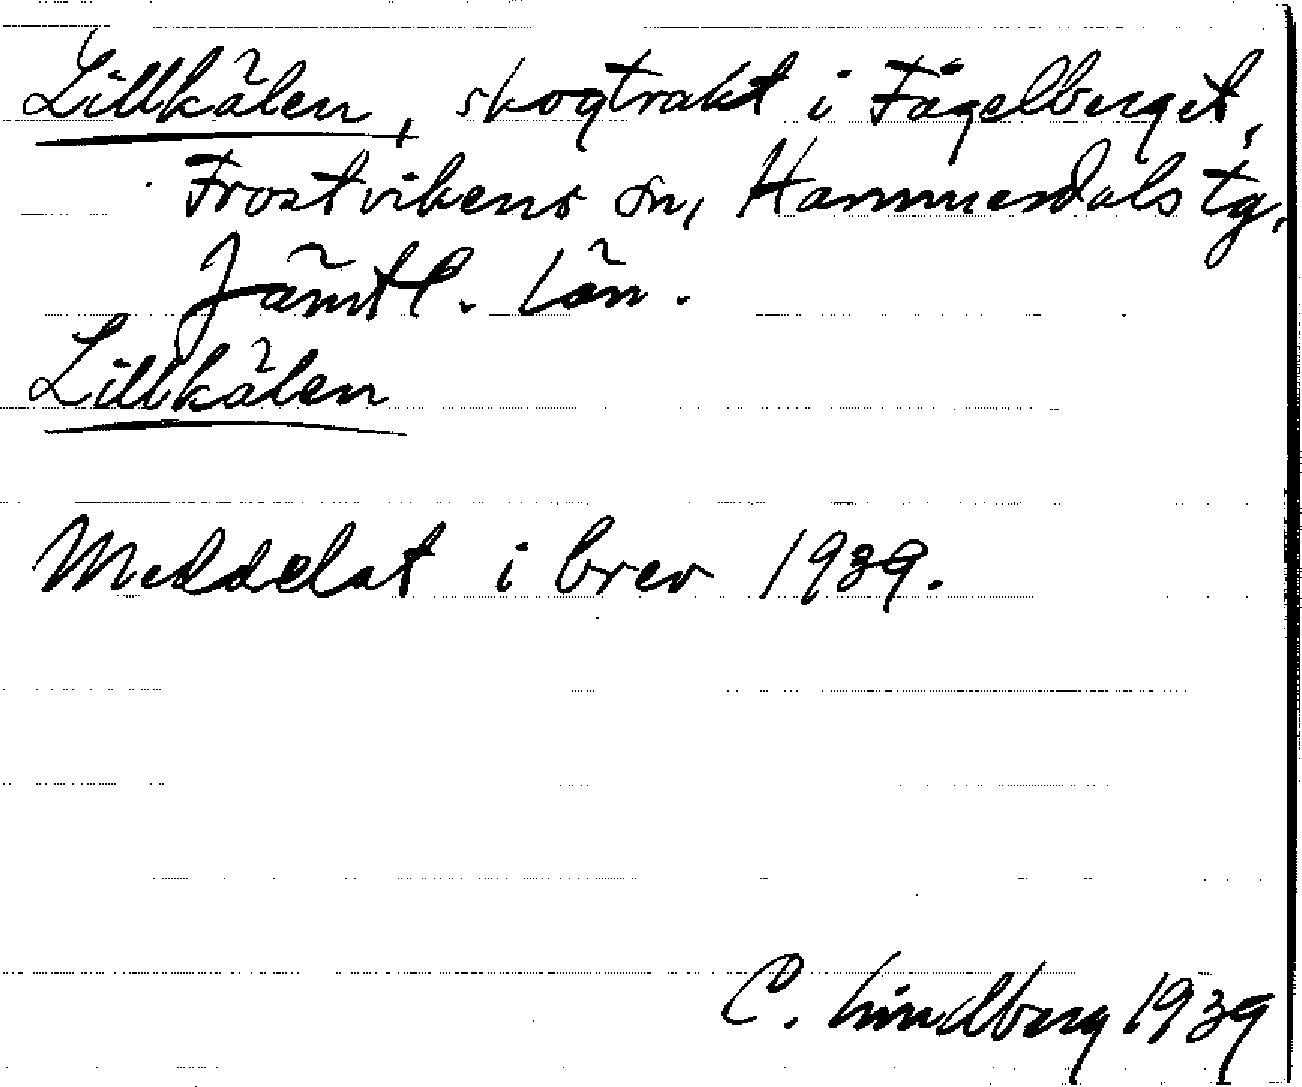 Lillkälen, skogtrakt i Fågelberget,
Frostvikens sn, Hammerdals tg,
Jämtl. län.
Lillkälen
Meddelat i brev 1939.
C. Lindberg 1939